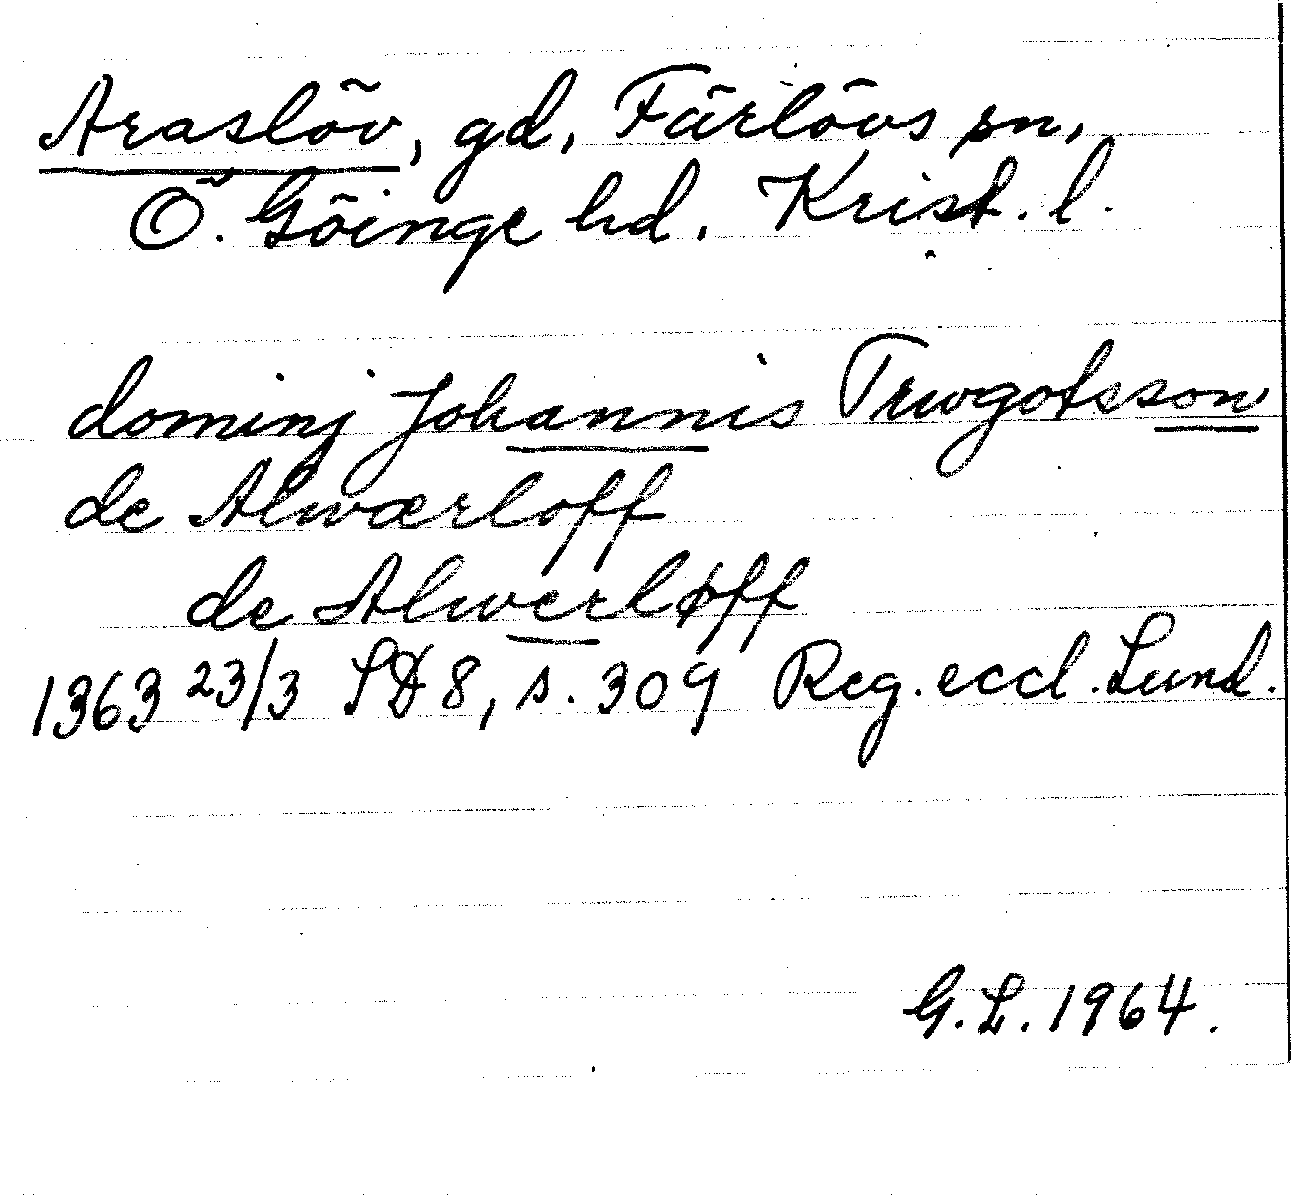 Araslöv, gd, Färlövs sn,
Ö. Göinge hd. Krist. l.
dominj Johannis Trwgotsson
de Alwærloff
de Alwerløff
1363 23/3 SD 8, s. 309 Reg. eccl. Lund.
G. L. 1964.